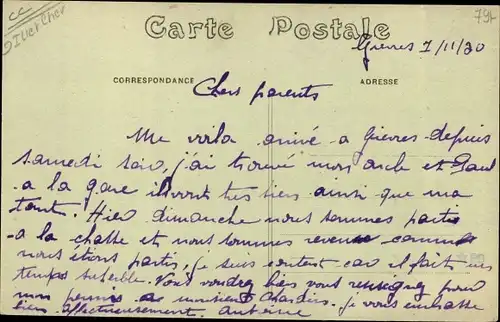 cc
Carte Postale
CORRESPONDANCE
ADRESSE
Gievres 7/11/30
Chers parents
Me voila arrivé a Gievres depuis
samedi soir, j'ai trouvé mon oncle et Paul
a la gare ils vont tres bien ainsi que ma
tante. Hier dimanche nous sommes partis
a la chasse et nous sommes revenu comme
nous étions partis, je suis content car il fait un
temps superbe. Vous voudrez bien vous renseigner pour
mon permis de monsieur je vous embrasse
bien affectueusement. Antoine